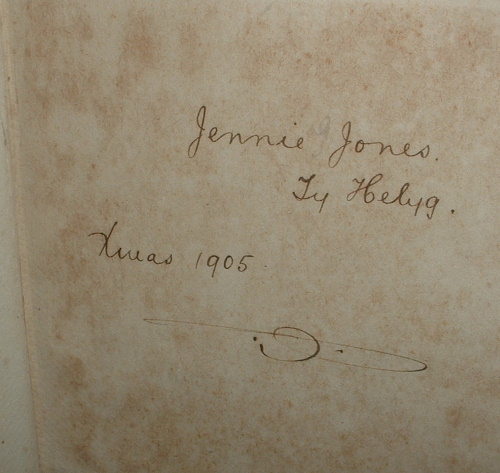 Jennie Jones.
Ty Helyg.
Xmas 1905